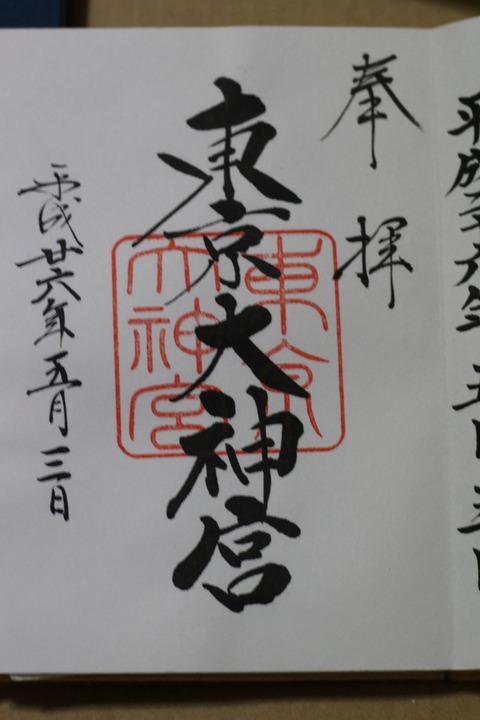 平成二六年五月三日
奉拝
東京大神宮
東京
大神宮
平成廿六年五月三日